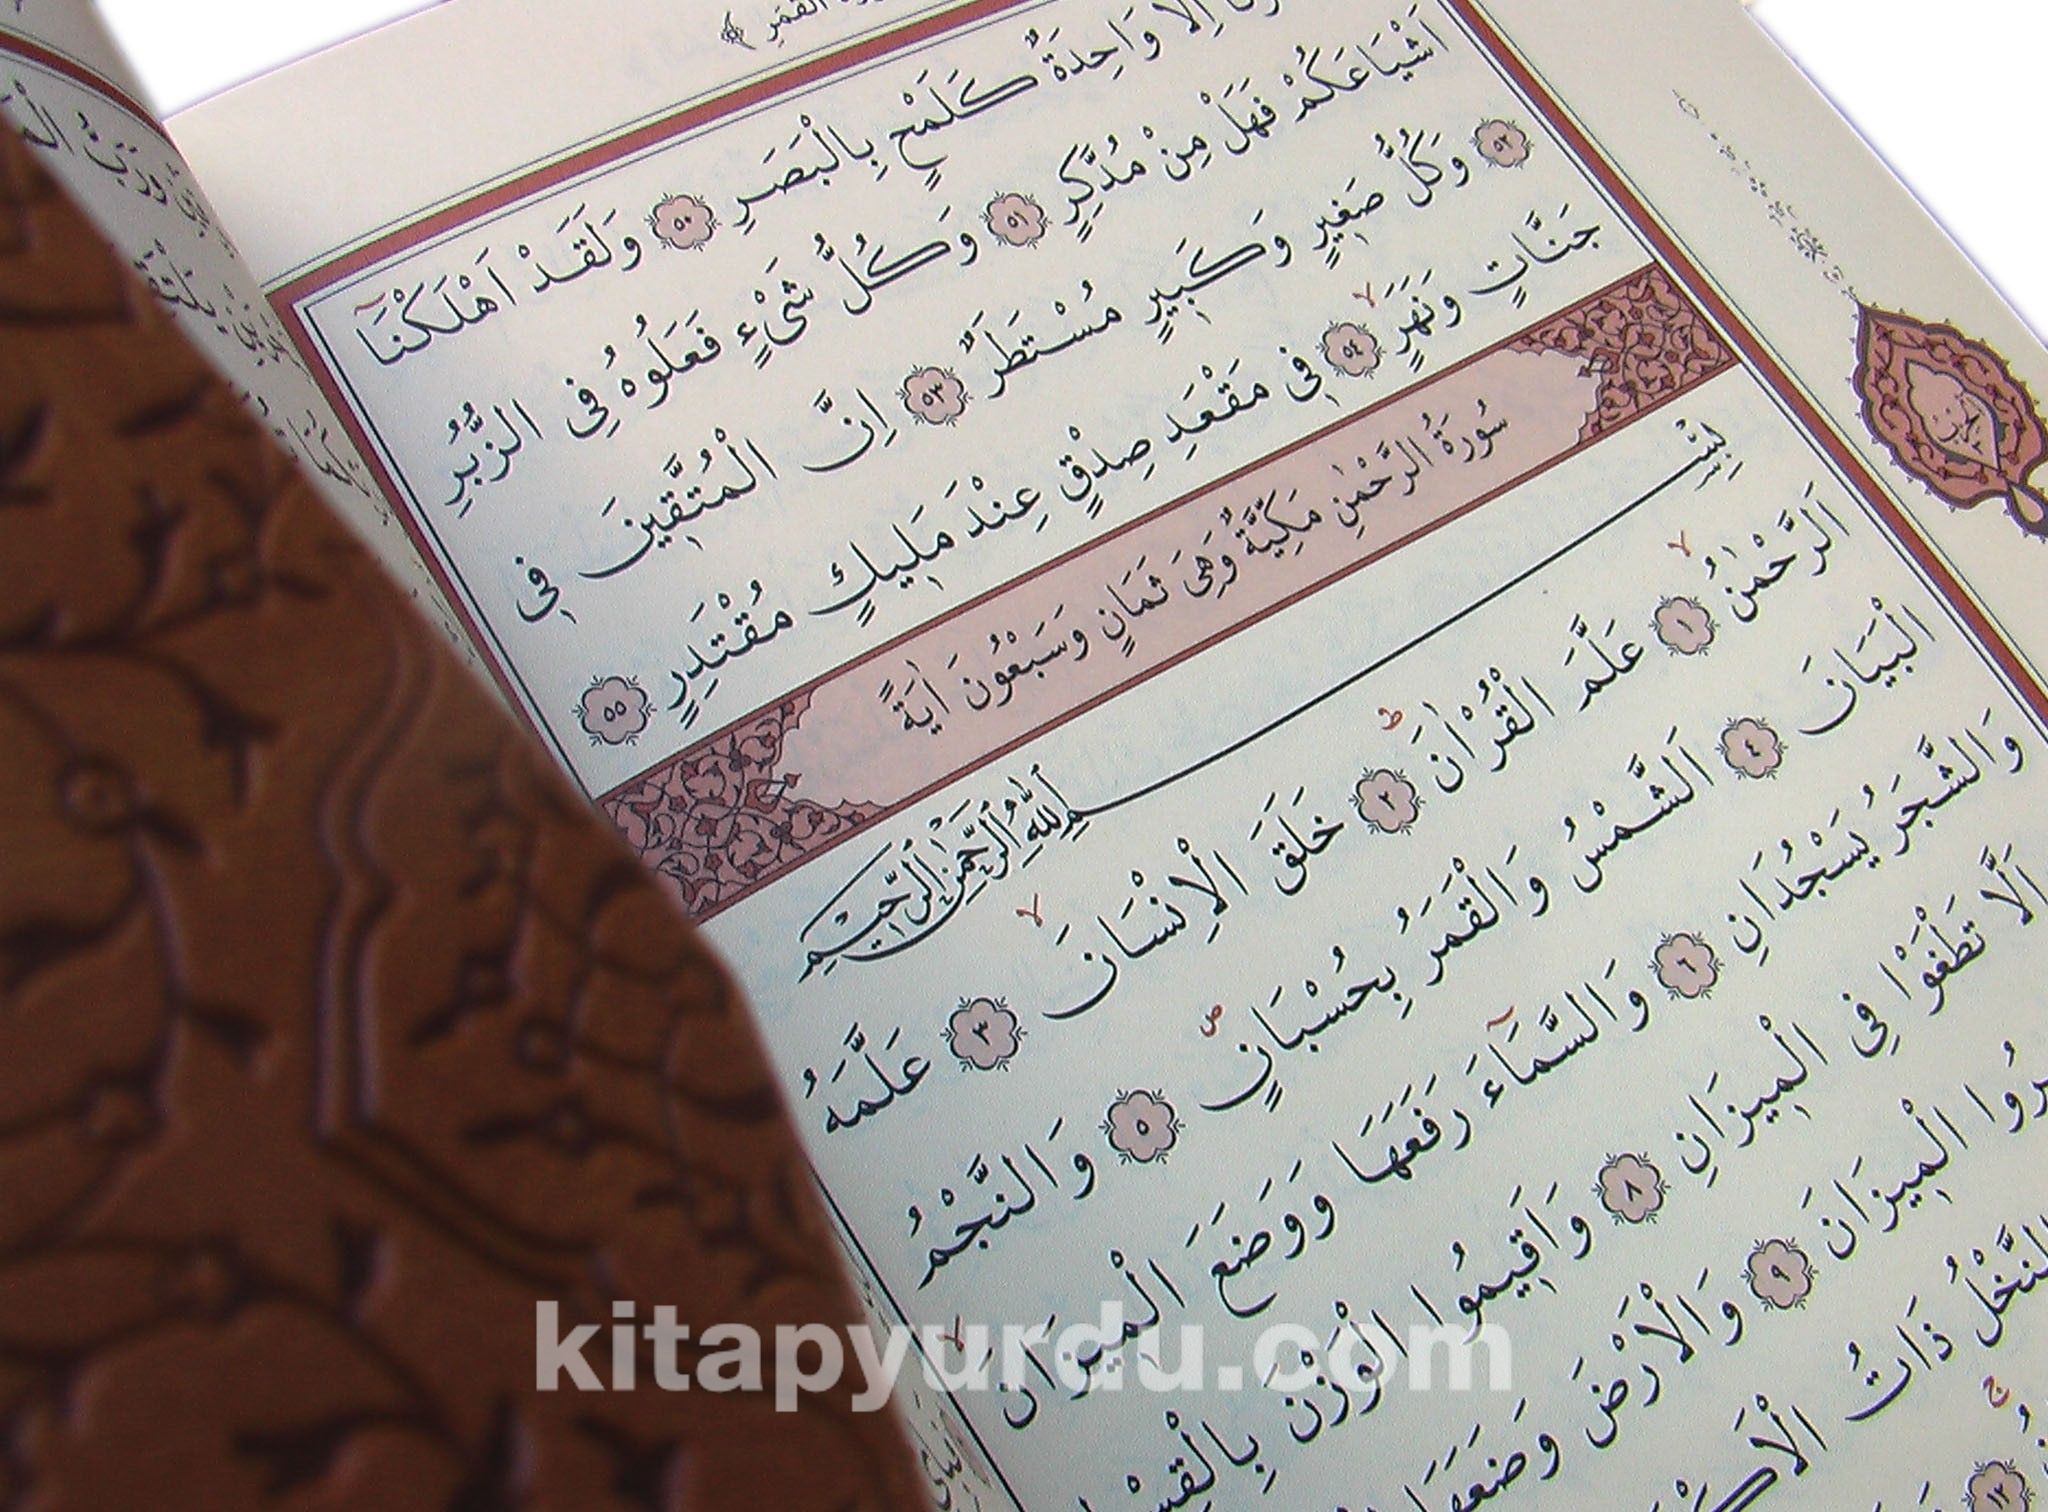 اِلَّا وَاحِدَةٌ كَلَمْحٍ بِالْبَصَرِ ﴿٥٠﴾ وَلَقَدْ اَهْلَكْنَٓا
اَشْيَاعَكُمْ فَهَلْ مِنْ مُدَّكِرٍ ﴿٥١﴾ وَكُلُّ شَىْءٍ فَعَلُوهُ فِى الزُّبُرِ
﴿٥٢﴾ وَكُلُّ صَغ۪يرٍ وَكَب۪يرٍ مُسْتَطَرٌ ﴿٥٣﴾ اِنَّ الْمُتَّق۪ينَ ف۪ى
جَنَّاتٍ وَنَهَرٍ ﴿٥٤﴾ ف۪ى مَقْعَدِ صِدْقٍ عِنْدَ مَل۪يكٍ مُقْتَدِرٍ ﴿٥٥﴾
سُورَةُ الرَّحْمٰنِ مَكِّيَّةٌ وَهِىَ ثَمَانٍ وَسَبْعُونَ اٰيَةً
بِسْمِ اللّٰهِ الرَّحْمٰنِ الرَّح۪يمِ
اَلرَّحْمٰنُ ﴿١﴾ عَلَّمَ الْقُرْاٰنَ ﴿٢﴾ خَلَقَ الْاِنْسَانَ ﴿٣﴾ عَلَّمَهُ
الْبَيَانَ ﴿٤﴾ اَلشَّمْسُ وَالْقَمَرُ بِحُسْبَانٍ ﴿٥﴾ وَالنَّجْمُ
وَالشَّجَرُ يَسْجُدَانِ ﴿٦﴾ وَالسَّمَٓاءَ رَفَعَهَا وَوَضَعَ الْم۪يزَانَ
اَلَّا تَطْغَوْا فِى الْم۪يزَانِ ﴿٨﴾ وَاَق۪يمُوا الْوَزْنَ بِالْقِسْطِ
الْم۪يزَانَ ﴿٩﴾ وَالْاَرْضَ وَضَعَهَا
النَّخْلُ ذَاتُ الْاَكْمَامِ
﴿١٢﴾
kitapyurdu.com